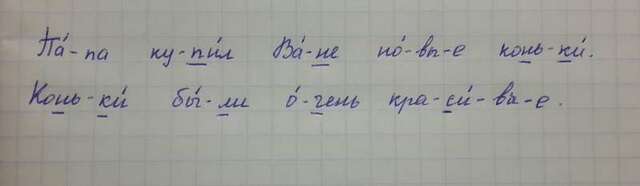 Па́-па ку-пи́л Ва́-не но́-вы-е конь-ки́.
Конь-ки́ бы́-ли о́-чень кра-си́-вы-е.